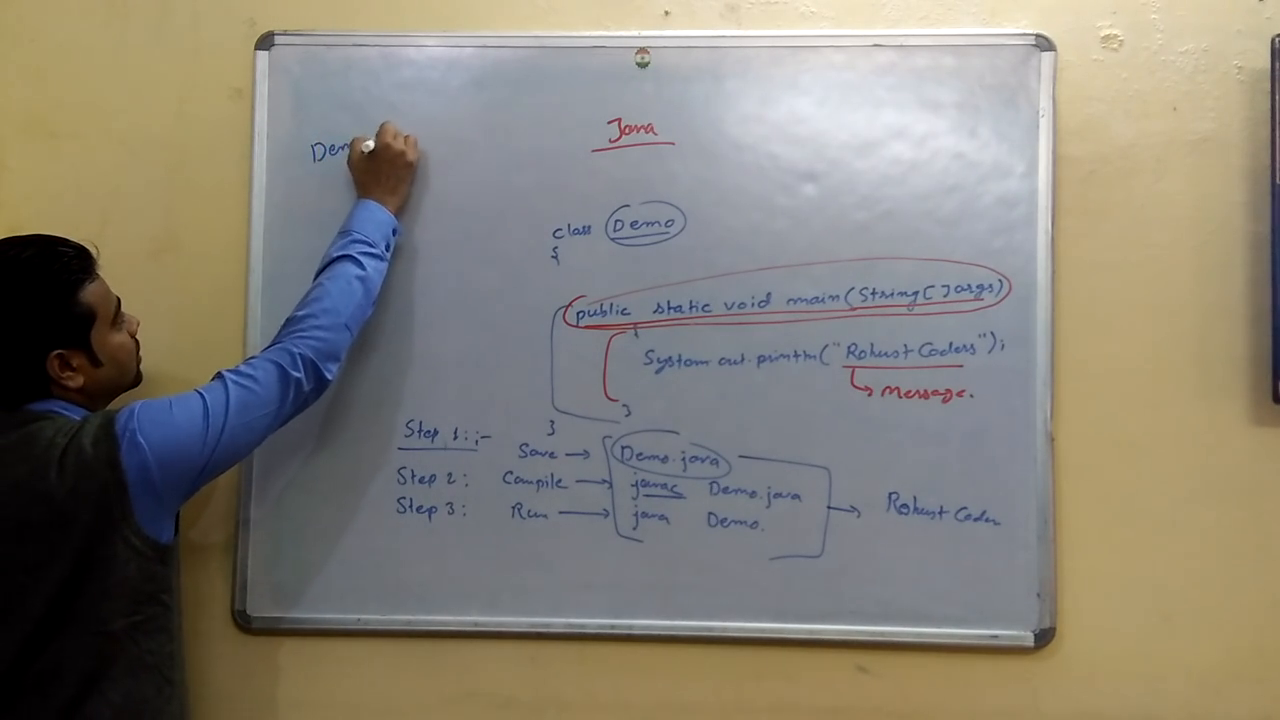 Java
Dem
class Demo
{
public static void main(String[]args)
{
System.out.println("Robust Coders");
Message.
}
}
Step 1:;-
Save → Demo.java
Step 2: Compile → javac Demo.java
Step 3: Run → java Demo.
→ Robust Coder